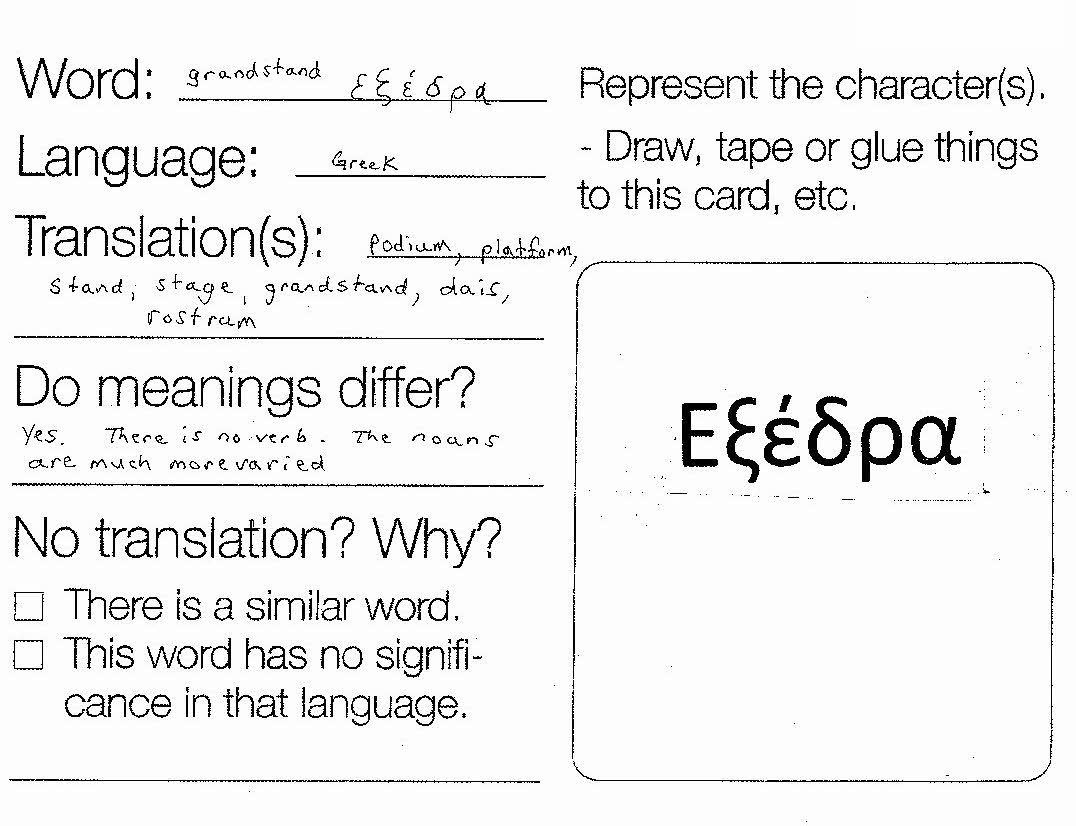 Word: grandstand εξέδρα
Language: Greek
Translation(s): Podium, platform,
stand, stage, grandstand, dais,
rostrum
Do meanings differ?
Yes. There is no verb. The nouns
are much more varied
No translation? Why?
There is a similar word.
This word has no signifi-
cance in that language.
Represent the character(s).
- Draw, tape or glue things
to this card, etc.
Εξέδρα